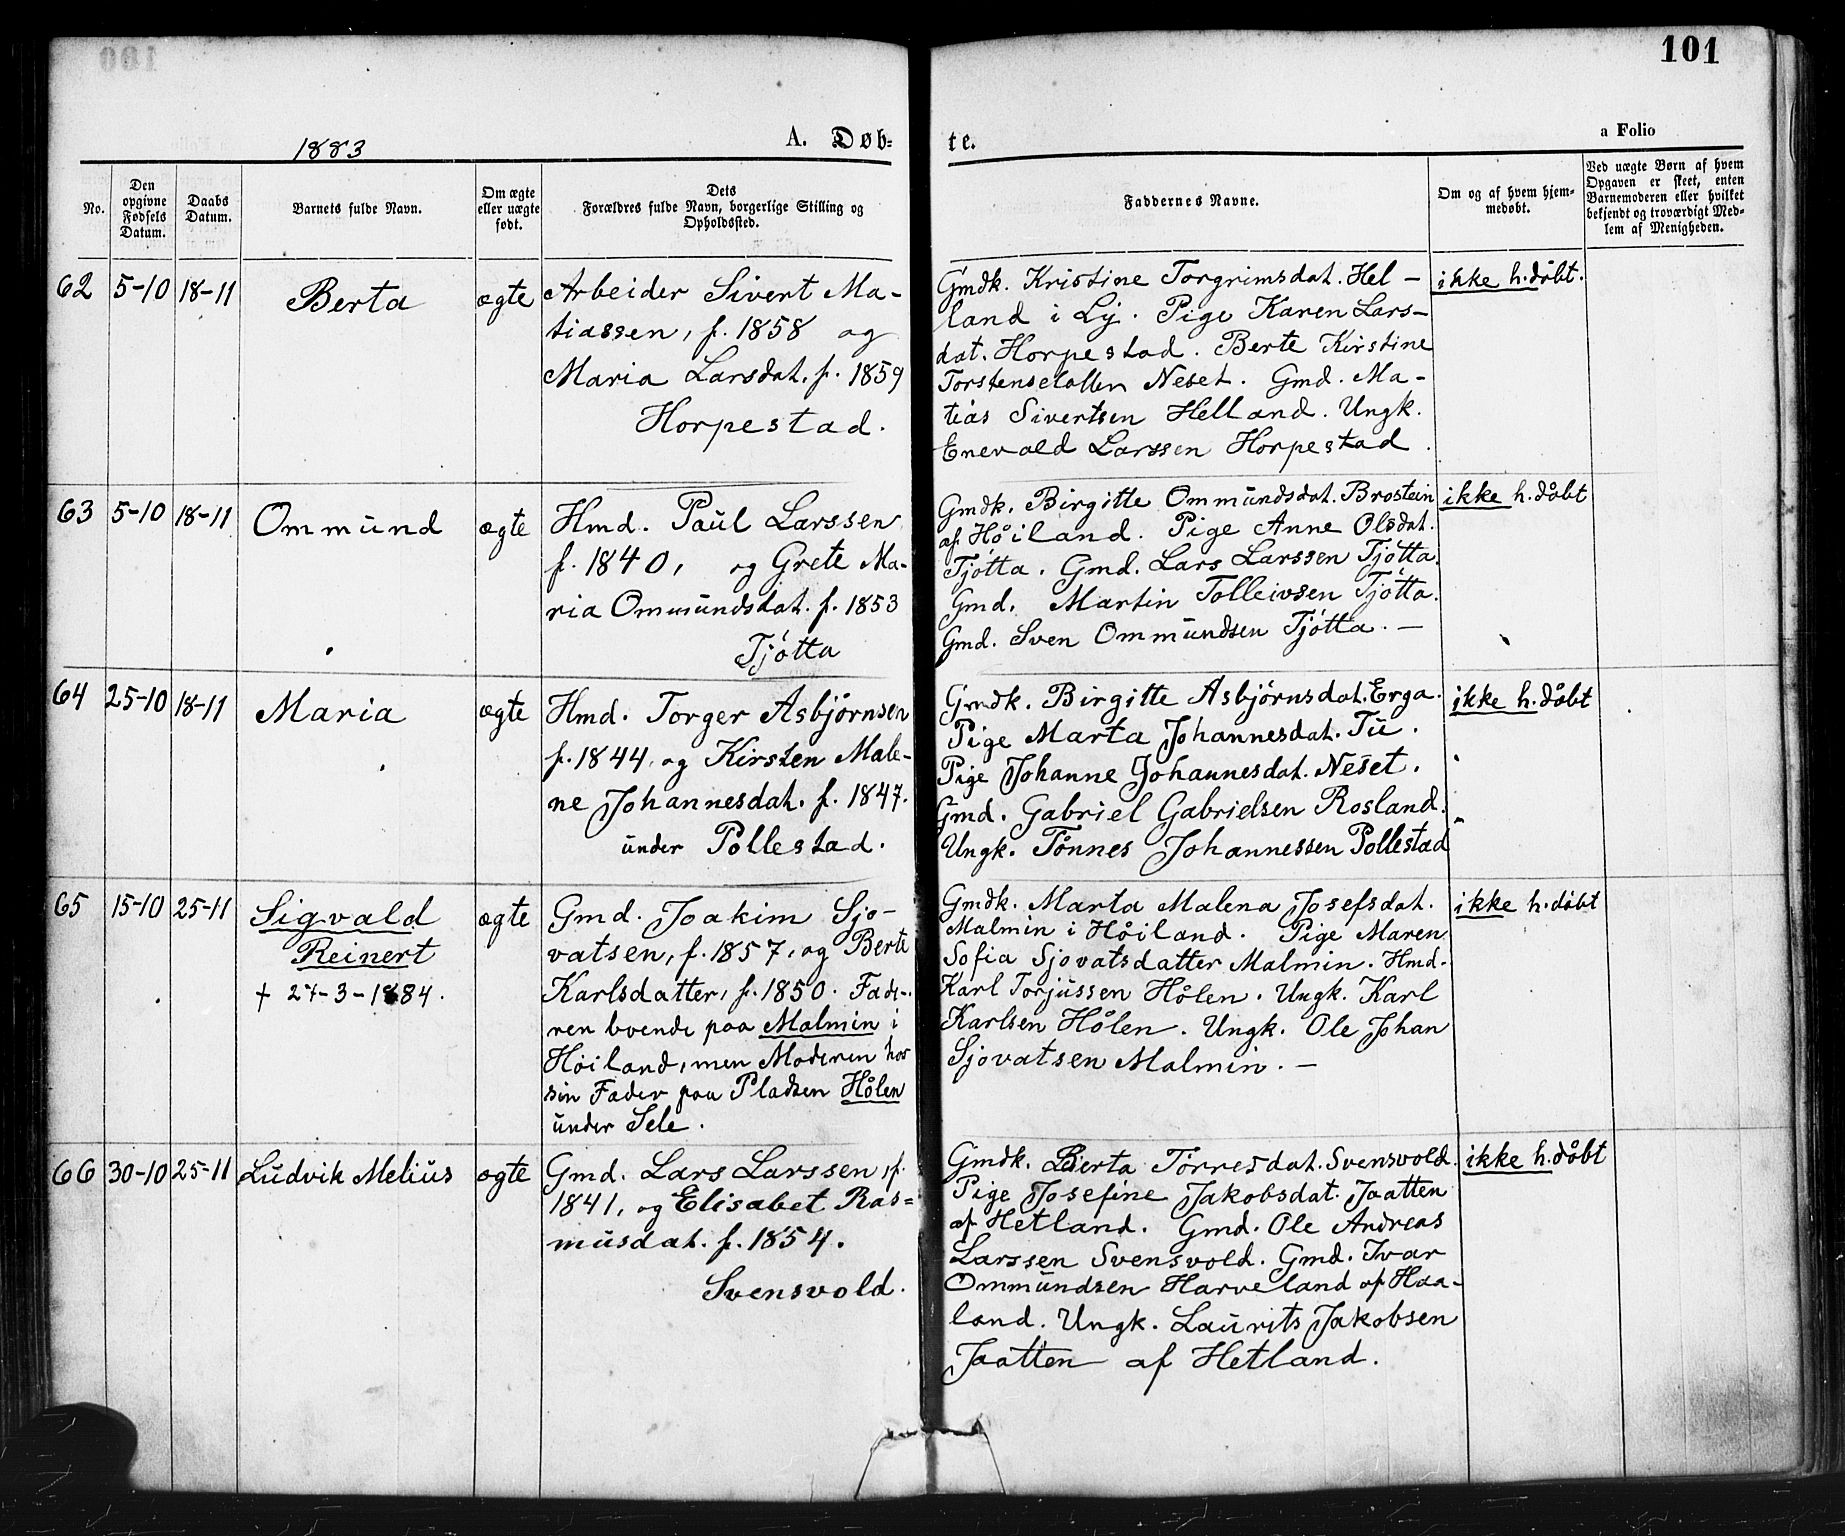 101
1883
A. Døb-
te.
a Folio
No.
Den
opgivne
Fødsels
Datum.
Daabs
Datum.
Barnets fulde Navn.
Om ægte
eller uægte
født.
Dets
Forældres fulde Navn, borgerlige Stilling og
Opholdssted.
Faddernes Navne.
Om og af hvem hjem-
medøbt.
Ved uægte Børn af hvem
Opgaven er skeet, enten
Barnemoderen eller hvilket
bekjendt og troværdigt Med-
lem af Menigheden.
62 5-10 18-11
Berta
ægte
Arbeider Sivert Ma-
tiassen, f. 1858 og
Maria Larsdat. f. 1859
Horpestad.
Gmdk. Kristine Torgrimsdat. Hel-
land i Ly. Pige Karen Lars-
dat. Horpestad. Berte Kirstine
Neset. Gmd. Ma-
tias Sivertsen Helland. Ungk.
Enevald Larssen Horpestad.
ikke h.døbt.
63 5-10 18-11
Ommund
ægte
Hmd. Paul Larssen
f. 1840, og Grete Ma-
ria Ommundsdat. f. 1853
Tjøtta
Gmdk. Birgitte Ommundsdat. Brostein
af Høiland. Pige Anne Olsdat.
Tjøtta. Gmd. Lars Larssen Tjøtta.
Gmd. Martin Tolleivsen Tjøtta.
Gmd. Sven Ommundsen Tjøtta. —
ikke h.døbt
64 25-10 18-11
Maria
ægte
Hmd. Torger Asbjørnsen
f. 1844, og Kirsten Male-
ne Johannesdat. f. 1847.
under Pollestad.
Gmdk. Birgitte Asbjørnsdat. Erga.
Pige Marta Johannesdat. Tu.
Pige Johanne Johannesdat. Neset.
Gmd. Gabriel Gabrielsen Rosland.
Ungk. Tønnes Johannessen Pollestad
ikke h.døbt
65 15-10 25-11
Sigvald
Reinert
† 27-3-1884.
ægte
Gmd. Joakim Sjo-
vatsen, f. 1857, og Berte
Karlsdatter, f. 1850. Fade-
ren boende paa Malmin i
Høiland, men Moderen hos
sin Fader paa Pladsen Hålen
under Sele.
Gmdk. Marta Malena Josefsdat.
Malmin i Høiland. Pige Maren
Sofia Sjovatsdatter Malmin. Hmd.
Karl Torjussen Hålen. Ungk. Karl
Karlsen Hålen. Ungk. Ole Johan
Sjovatsen Malmin. —
ikke h.døbt
66 30-10 25-11
Ludvik Melius
ægte
Gmd. Lars Larssen, f.
1841, og Elisabet Ras=
musdat. f. 1854.
Svensvold.
Gmdk. Berta Tørresdat. Svensvold.
Pige Josefine Jakobsdat. Jaatten
af Hetland. Gmd. Ole Andreas
Larssen Svensvold. Gmd. Ivar
Ommundsen Harveland af Haa-
land. Ungk. Laurits Jakobsen
Jaatten af Hetland.
ikke h.døbt